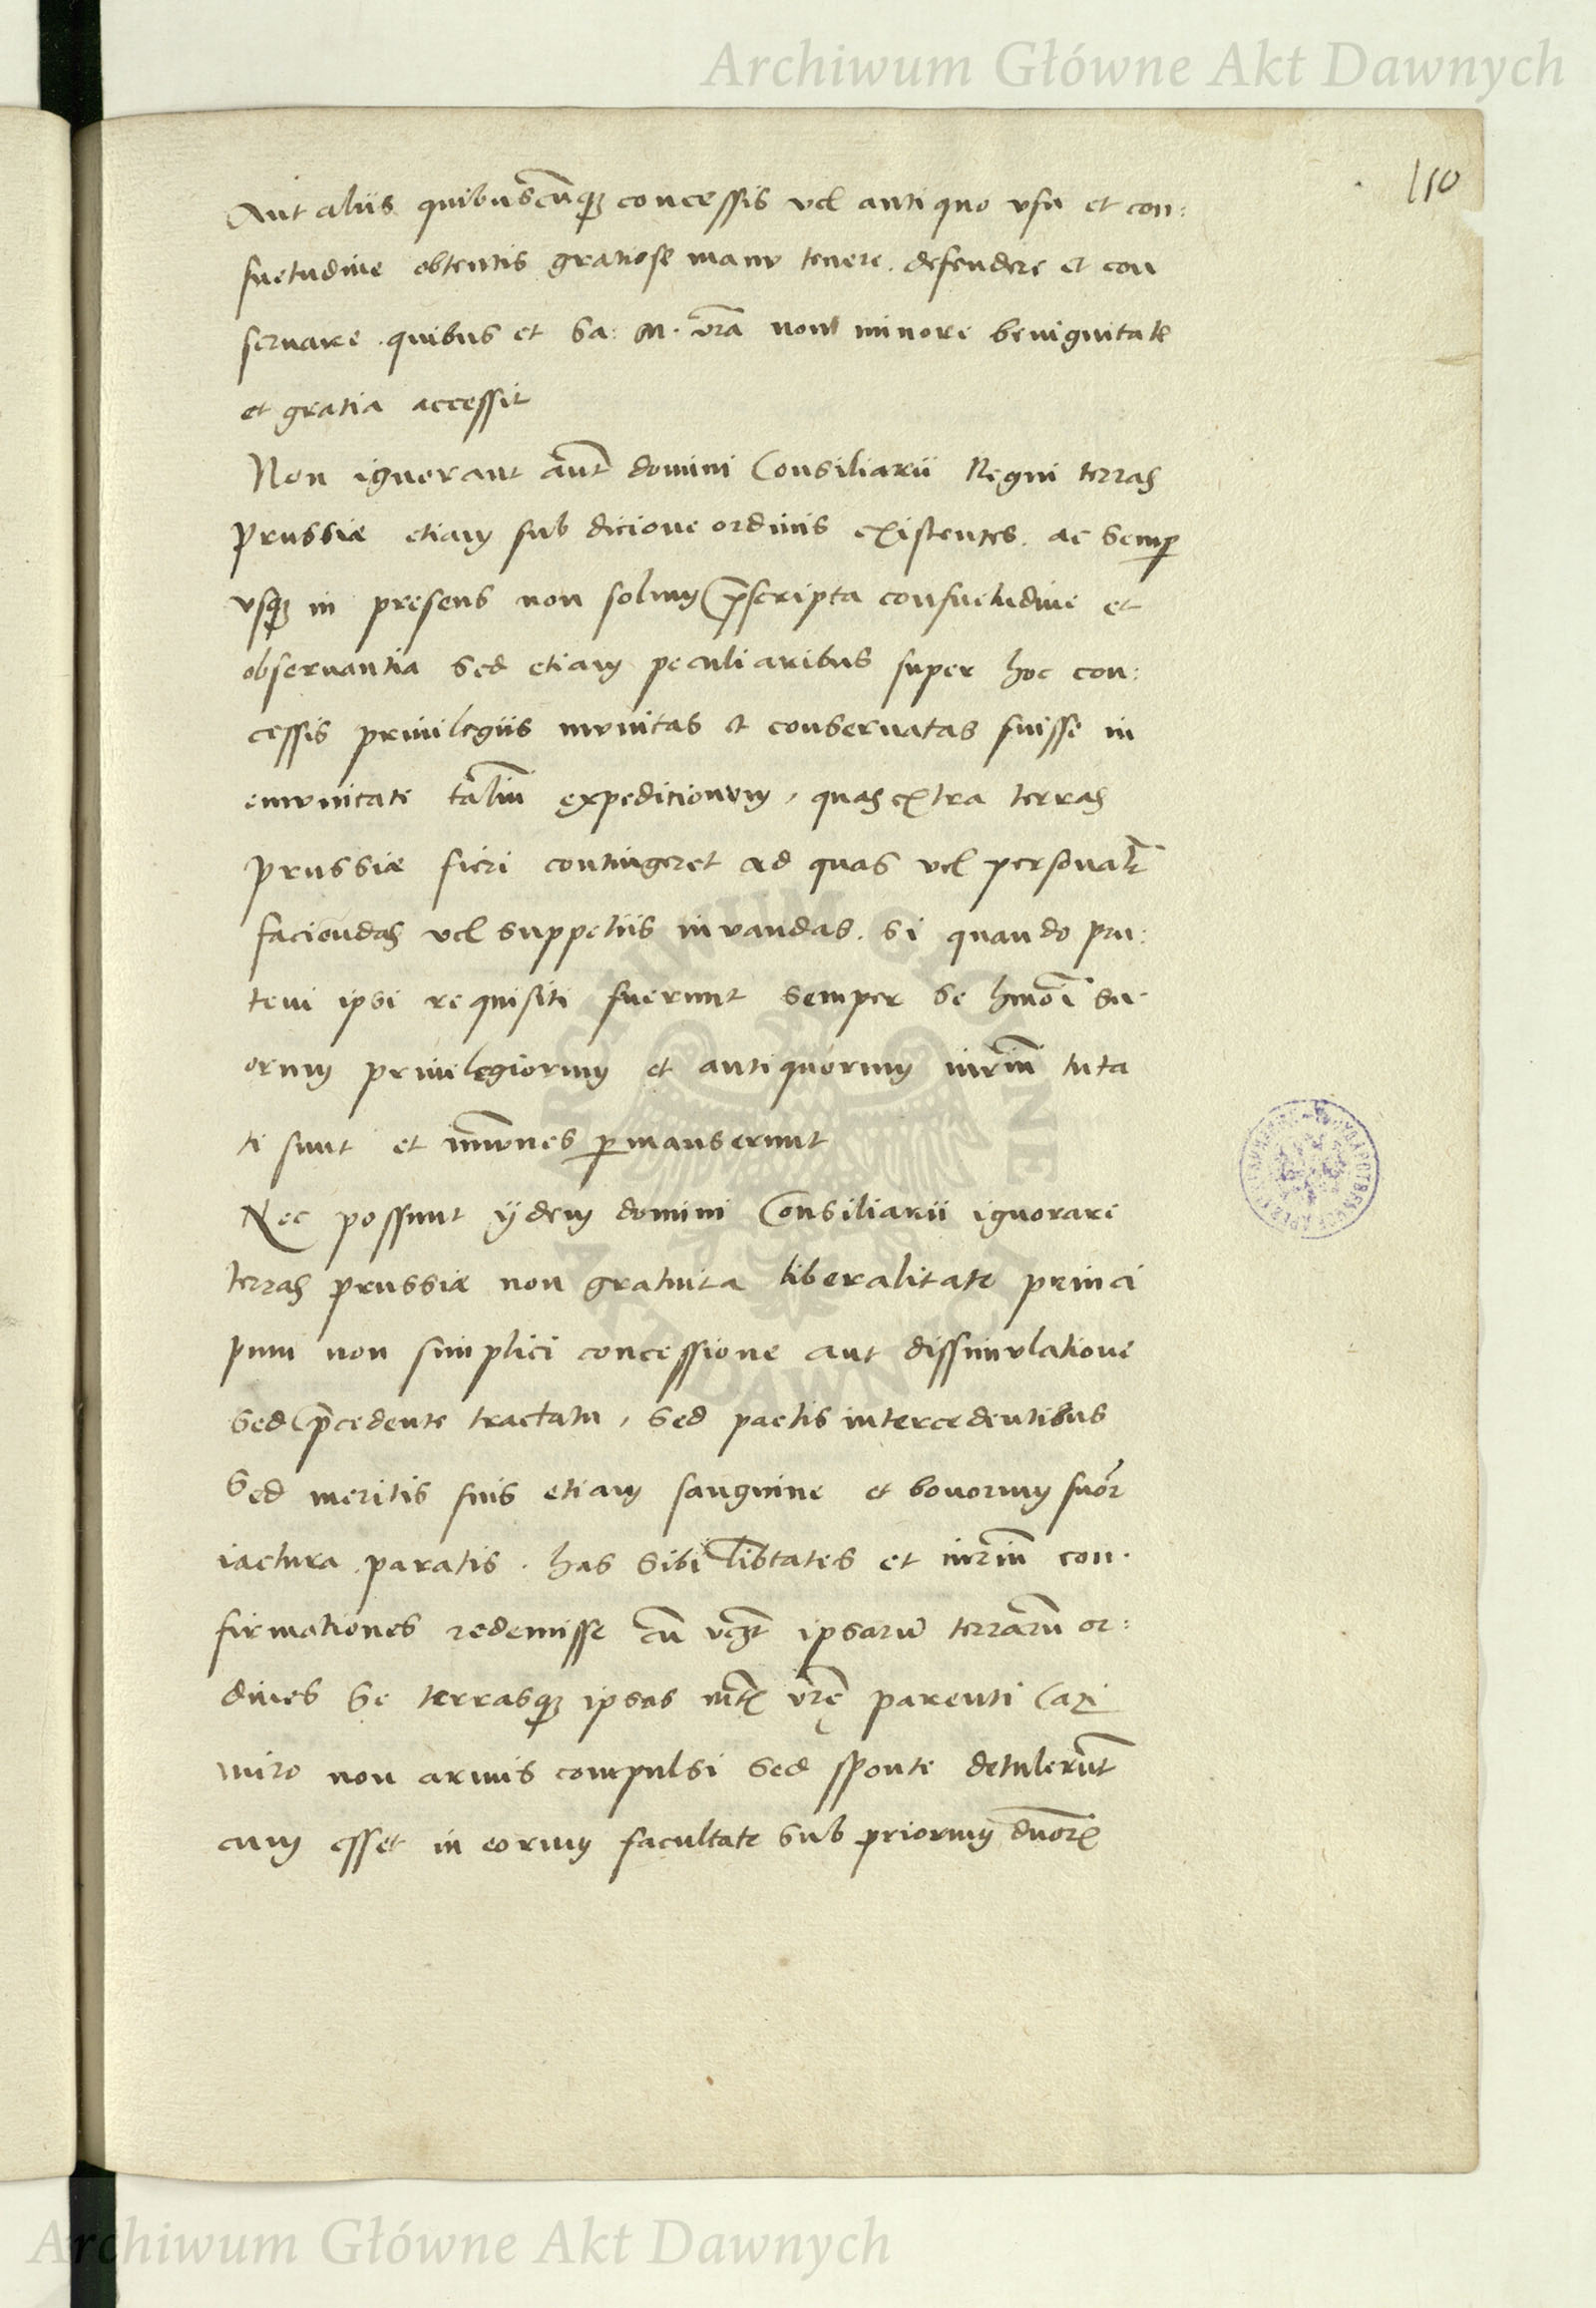 Archiwum Główne Akt Dawnych
110
Aut aliis quibuscūqꝫ concessis vel antiquo vsu et con:
suetudine obtentis gratiose manv tenere. defendere et con
seruare. quibus et Sa: M. vr̄a non minore benignitate
et gratia accessit
Non ignorant aūt domini Consiliarii Regni terras
Prussiæ etiam sub dicione ordinis existentes. ac semꝑ
vsqꝫ in presens non solum p̄scripta consuetudine et
obseruantia Sed etiam peculiaribus super hoc con:
cessis priuilegiis mvnitas et conseruatas fuisse in
emvnitate taliū expeditionvm, quas extra terras
Prussiæ fieri contingeret ad quas vel personalr̄
faciendas vel suppetiis iuvandas. Si quando pru:
teni ipsi requisiti fuerunt semper se hmōi su
orum priuilegiorum et antiquorum iuriū tuta
ti sunt et im̄vnes ꝑmanserunt
Nec possunt ijdem domini Consiliarii ignorare
terras Prussiæ non gratuita liberalitate princi
pum non simplici concessione aut dissimvlatione
Sed p̄cedente tractatu, Sed pactis intercedentibus
Sed meritis suis etiam sanguine et bonorum suor̄
iactura paratis. has sibi lib̄tates et iuriū con.
firmationes redemisse cū vcꝫt ipsarū terrarū or:
dines Se terrasqꝫ ipsas mtꝭ vrę̄ parenti Cazi
miro non armis compulsi Sed sponte detulerūt
cum esset in eorum facultate Sub priorum dn̄orꝭ
ARCHIWUM GŁÓWNE AKT DAWNYCH
Archiwum Główne Akt Dawnych